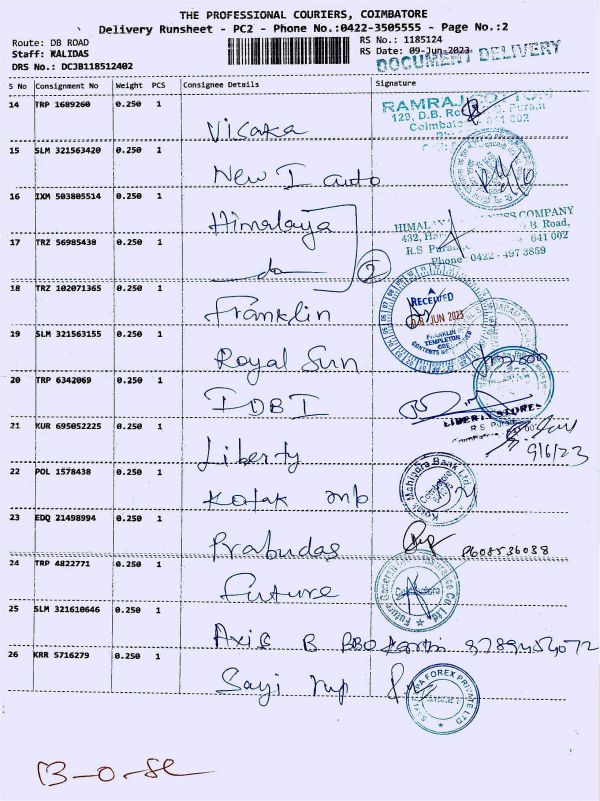 THE PROFESSIONAL COURIERS, COIMBATORE
Delivery Runsheet - PC2 - Phone No.:0422-3505555 - Page No.:2
Route: DB ROAD
Staff: KALIDAS
DRS No.: DCJB118512402
RS No.: 1185124
RS Date: 09-Jun-2023
DOCUMENT DELIVERY
S No Consignment No Weight PCS Consignee Details Signature
14 TRP 1689260 0.250 1
Visaka
RAMRAJ
129, D.B. Ro Puram
Coimbato 641 002
15 SLM 321563420 0.250 1
New I auto
16 IXM 503805514 0.250 1
Himalaya
HIMALAYA WELLNESS COMPANY
432, B. Road,
R.S Puram 641 002
Phone 0422 - 4973859
17 TRZ 56985438 0.250 1
do
2
18 TRZ 102071365 0.250 1
Franklin
RECEIVED
JUN 2023
FRANKLIN
TEMPLETON
CBE
CONTENTS
19 SLM 321563155 0.250 1
Royal Sun
20 TRP 6342069 0.250 1
IDBI
21 KUR 695052225 0.250 1
Liberty
LIBERTY STORES
R S Puram
9/6/23
22 POL 1578438 0.250 1
Kotak mp
Kotak Mahindra Bank Ltd.
Coimbatore
23 EDQ 21498994 0.250 1
Prabudas
9608536038
24 TRP 4822771 0.250 1
Future
Future Generali Insurance Co. Ltd
25 SLM 321610646 0.250 1
Axis B BBO
26 KRR 5716279 0.250 1
Sayi mp
FOREX PRIVATE LTD